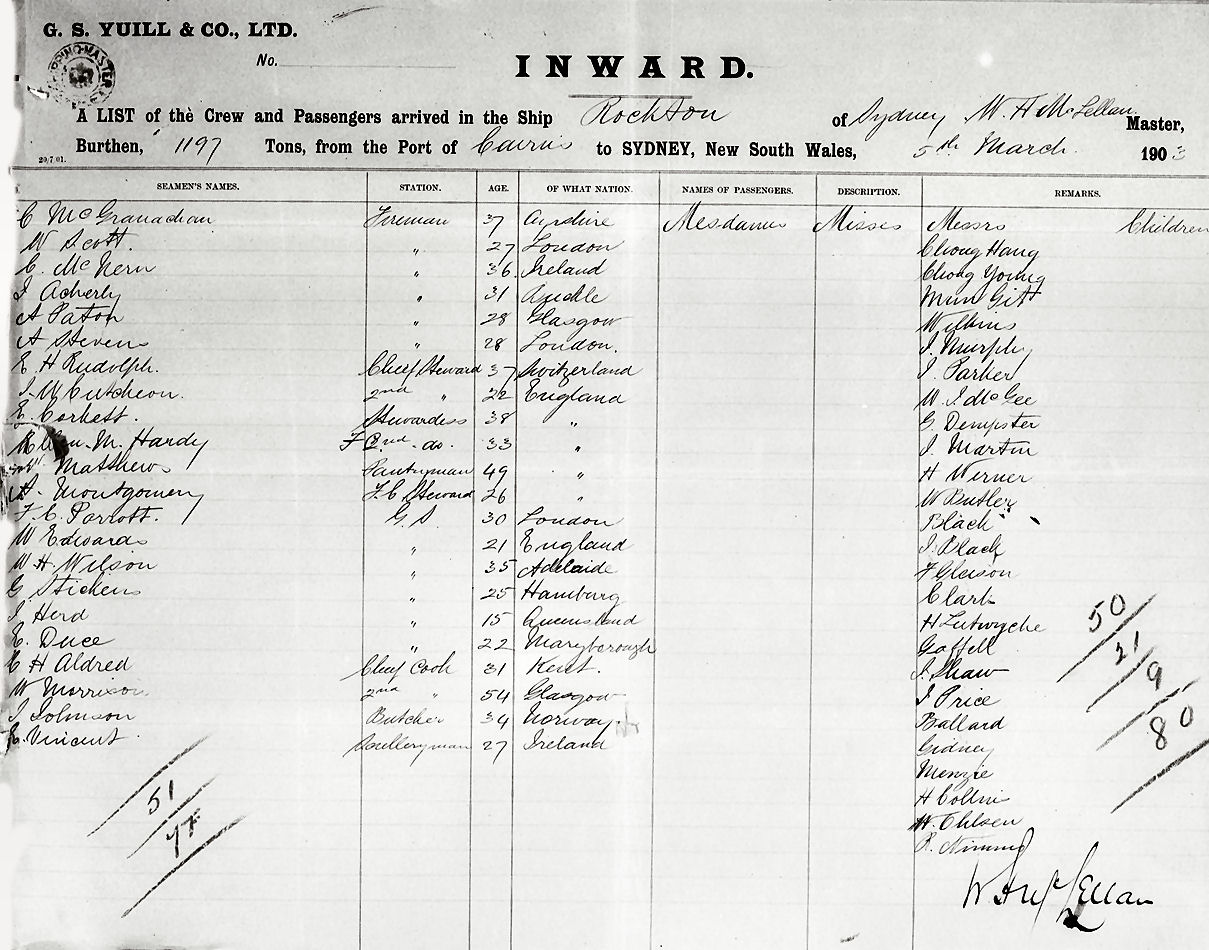 G. S. YUILL & CO., LTD.
No.
INWARD.
A LIST of the Crew and Passengers arrived in the Ship Rockton of Sydney W. H McLellan Master,
Burthen, 1197 Tons, from the Port of Cairns to SYDNEY, New South Wales, 5th March. 1903
20/7/01.
SEAMEN'S NAMES. STATION. AGE. OF WHAT NATION. NAMES OF PASSENGERS. DESCRIPTION. REMARKS.
C McGranachan Fireman 37 Ayrshire Mesdames Misses Messrs Children
W Scott. " 27 London Chong Hang
C. McNern " 36 Ireland Chong Young
J Acherly " 31 Mun Gitt
A Paton " 28 Glasgow Wilkins
A Stevens " 28 London. J. Murphy
E H Rudolph. Chief Steward 37 Switzerland J. Parker
J. M Cutcheon. 2nd " 22 England W. J. McGee
E. Corkett. Stewardess 38 " G. Dempster
M. Hardy 2nd do. 33 " J. Martin
Matthews Pantryman 49 " H Werner
A. Montgomery F.C Steward 26 " W Butler
F. C. Parrott. G.S. 30 London Black
W Edwards " 21 England J. Black
W H. Wilson " 35 Adelaide F Gleison
G Stickens " 25 Hamburg Clark
J Herd " 15 Queensland H Lutwyche
E. Duce " 22 Maryborough Gaffell
C H Aldred Chief Cook 31 Kent. J. Shaw
W Morrison 2nd " 54 Glasgow J Price
J Johnson Butcher 34 Norway. Ballard
E. Vincent Sculleryman 27 Ireland Gidney
Menzie
H Collins
W. Ohlsen
R. Nimmo
50
21
9
80
51
77
W H McLellan